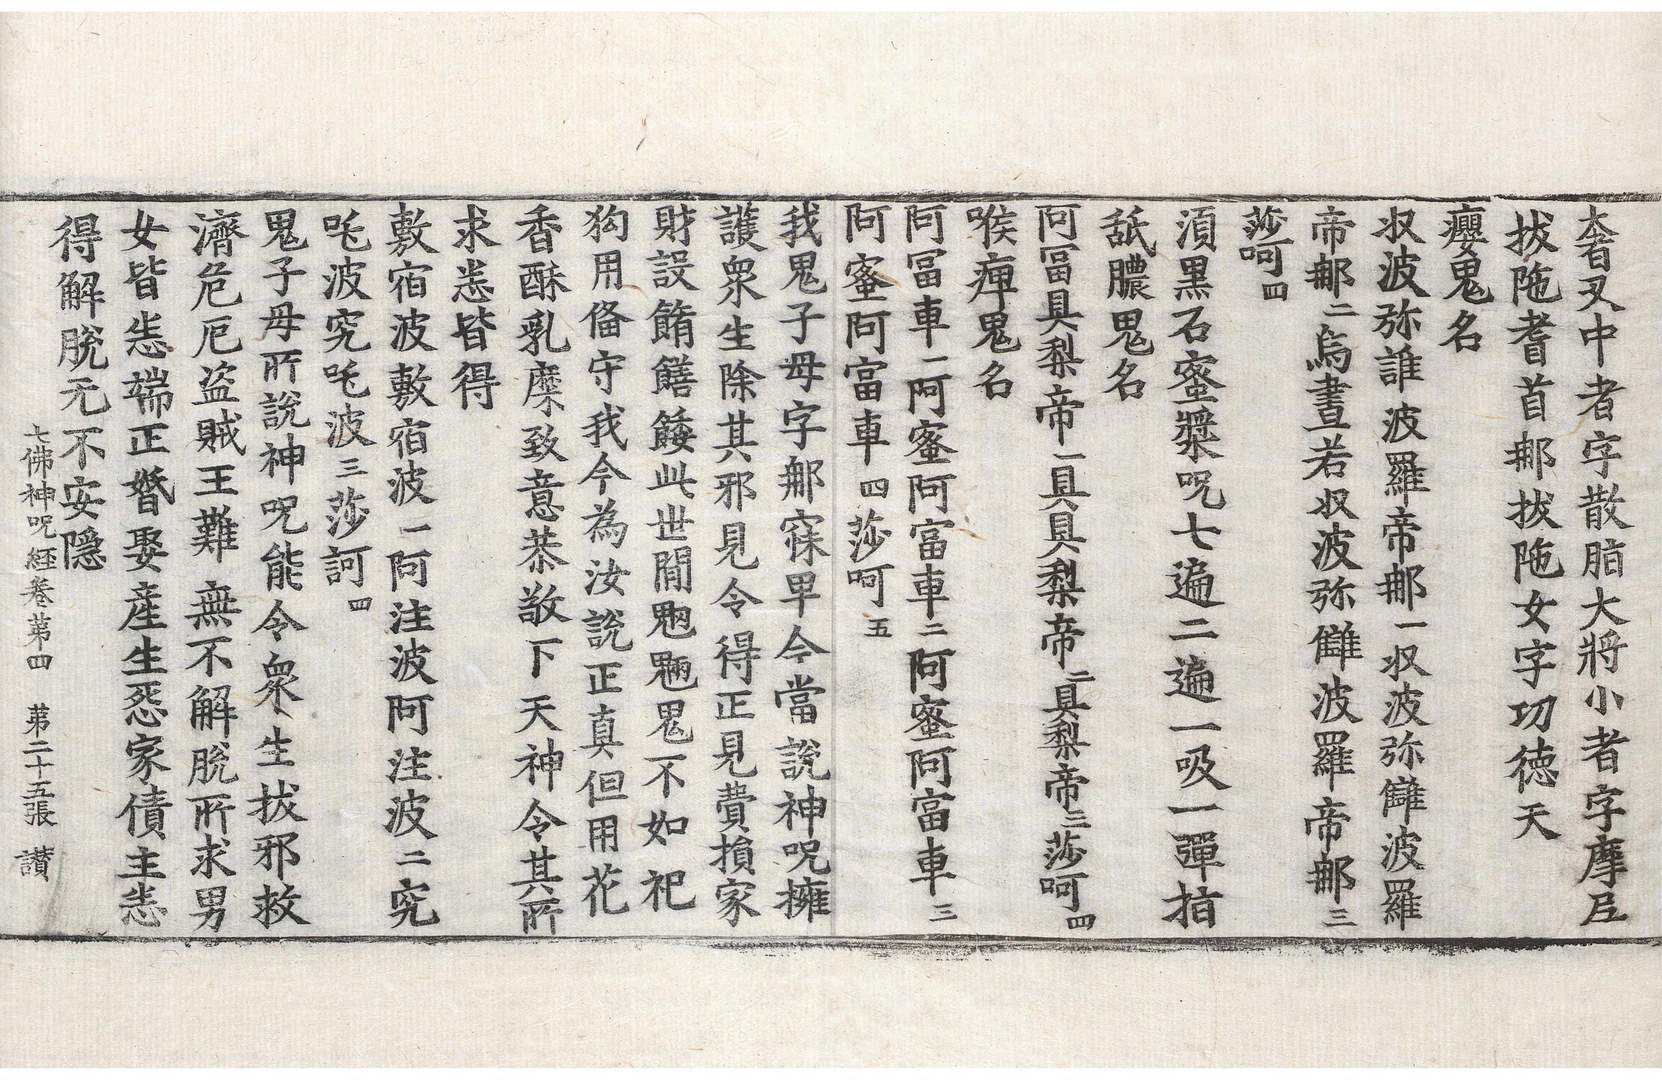 奢叉中者字散脂大將小者字摩𡰱
拔陁耆首𨚗拔陁女字㓛德天
癭鬼名
𠬧波弥誰波羅帝𨚗一𠬧波弥讎波羅
帝𨚗二烏晝若𠬧波弥讎波羅帝𨚗三
莎呵四
湏黒石蜜漿呪七遍二遍一吸一彈指
舐膿鬼名
阿冨具梨帝一具具梨帝二具梨帝三莎呵四
喉痺鬼名
阿冨車一阿蜜阿富車二阿蜜阿富車三
阿蜜阿富車四莎呵五
我鬼子母字𨚗寐甲今當說神呪擁
護衆生除其邪見令得正見費損家
財設餚饍餧此世間魍魎鬼不如祀
狗用俻守我今為汝說正真但用花
香酥乳糜致意恭敬下天神令其所
求恙皆得
敷宿波敷宿波一阿注波阿注波二究
吒波究吒波三莎訶四
鬼子母所說神呪能令衆生拔邪救
濟危厄盜賊王難無不解脫所求男
女皆恙端正婚娶產生惡家債主恙
得解脫无不安隱
七佛神呪経卷苐四 苐二十五張 讃